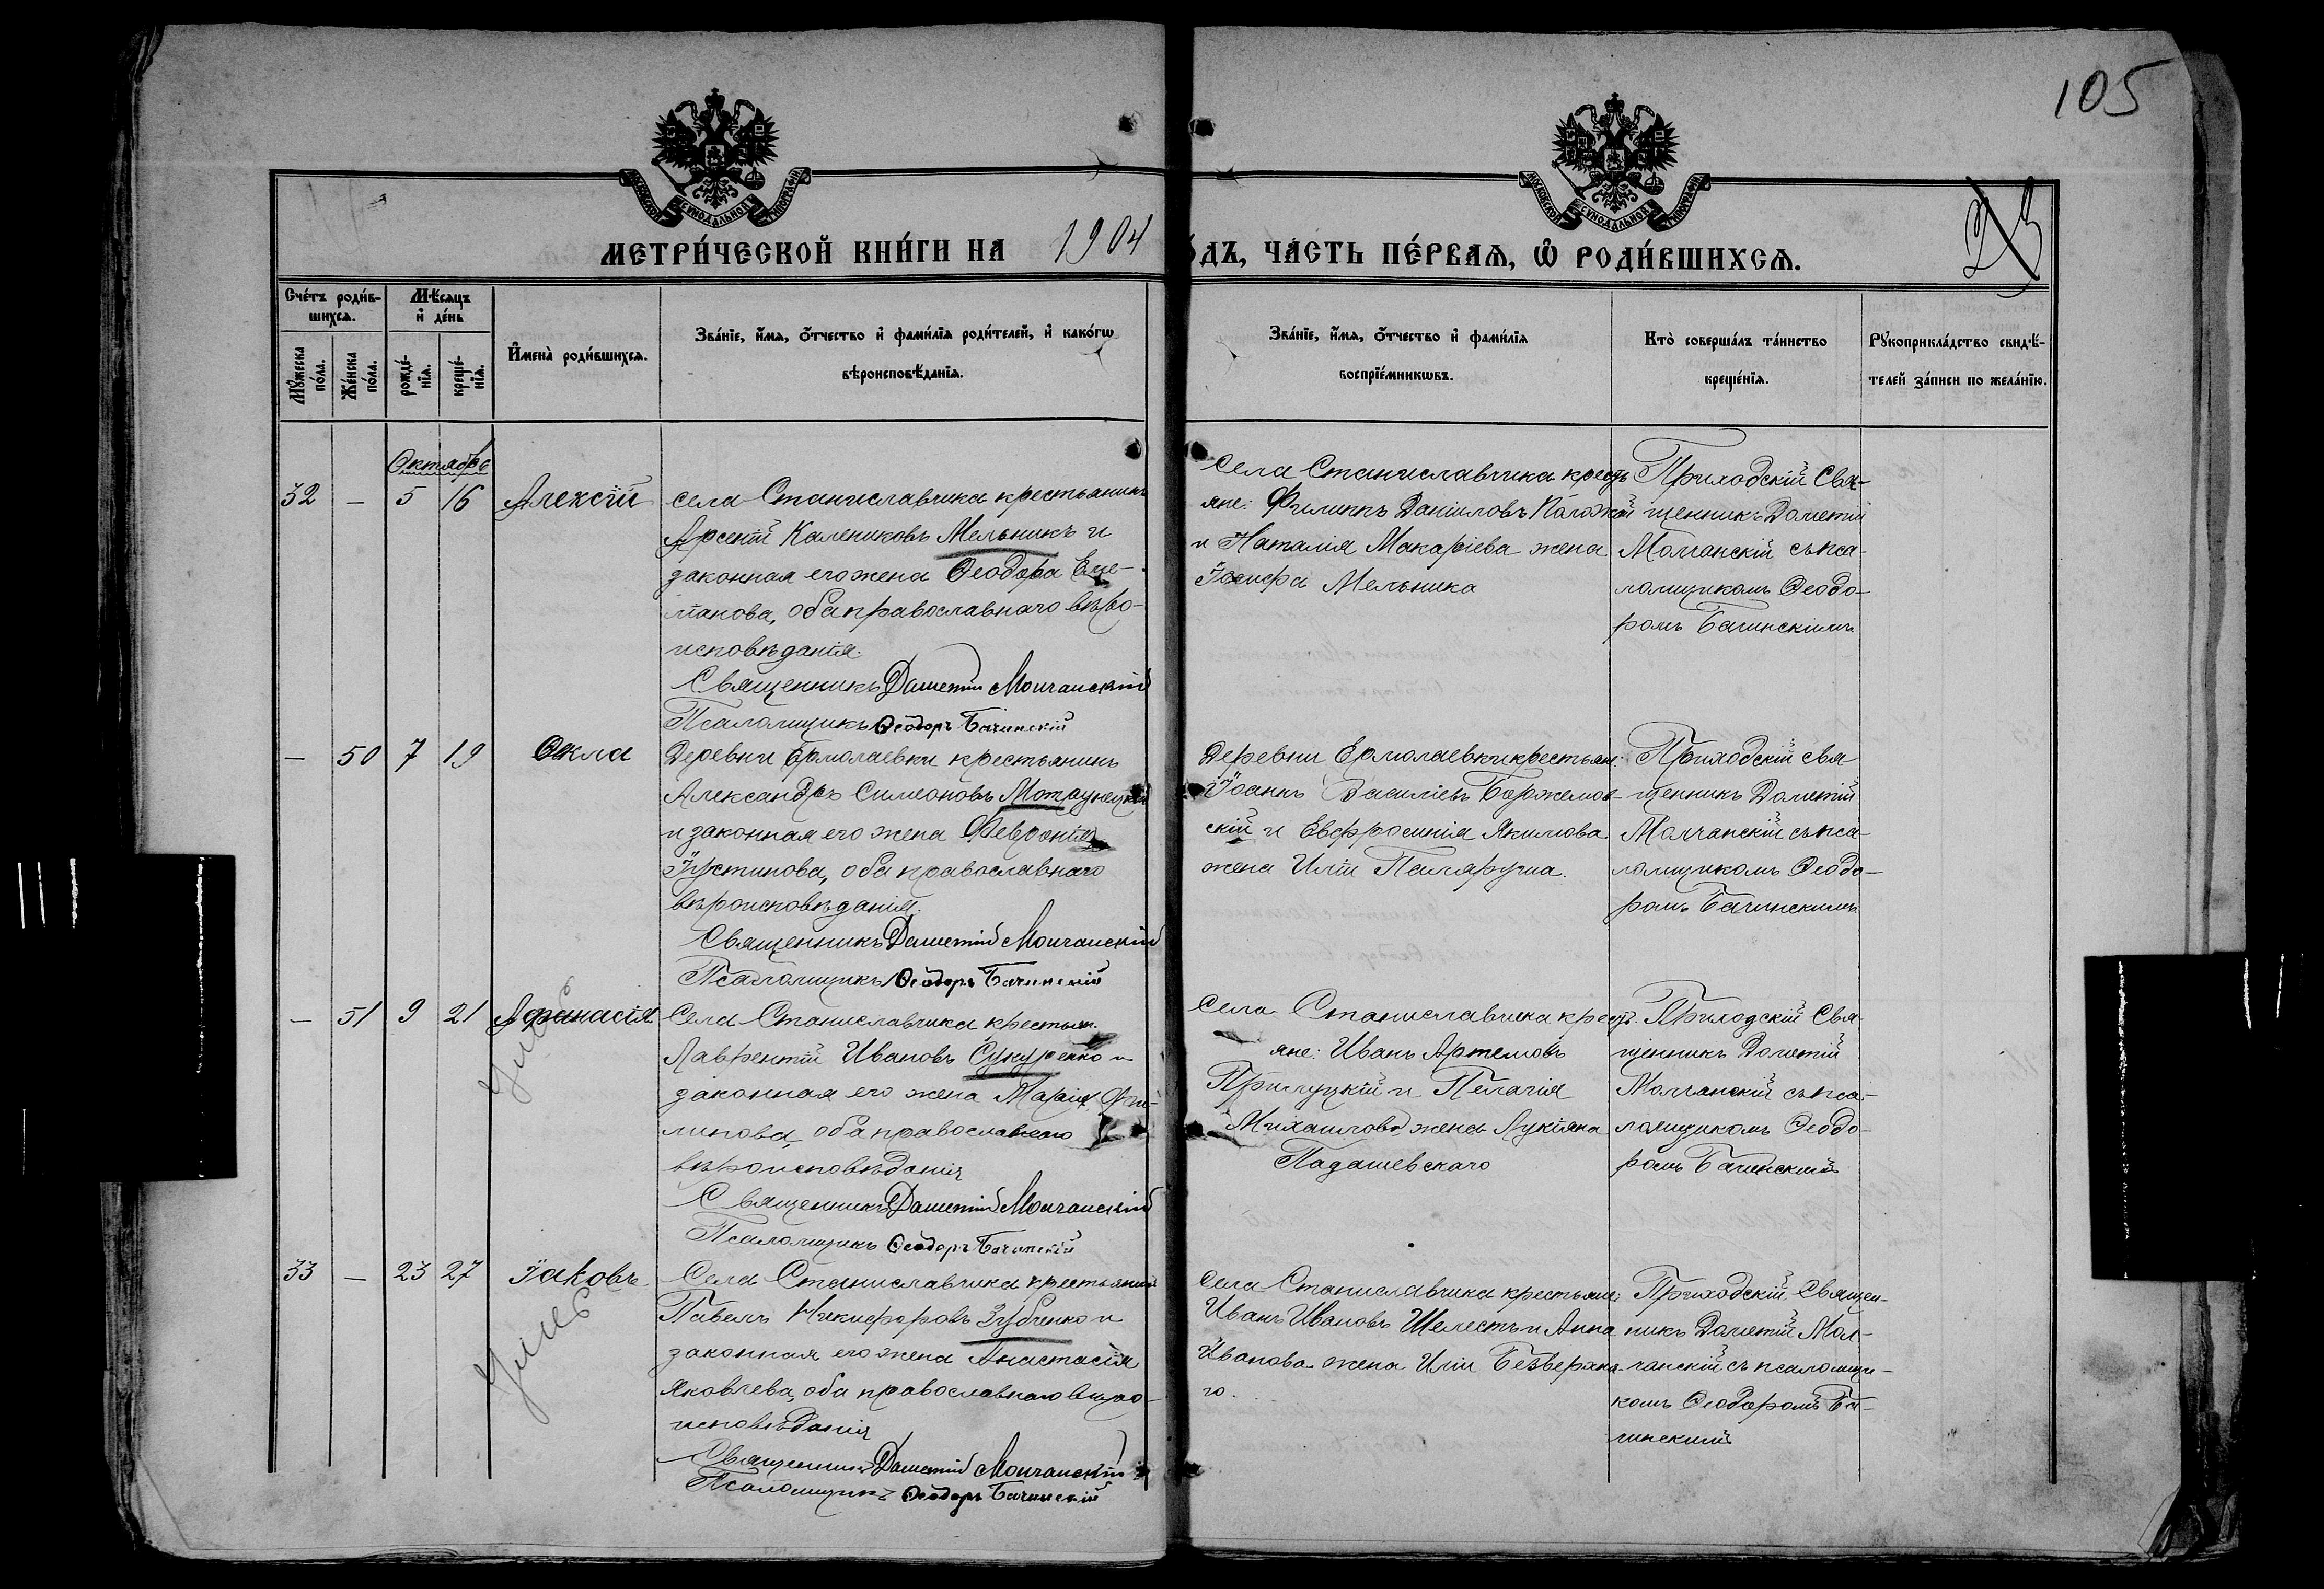 105
23
МОСКОВСКОЙ СѴНОДАЛЬНОЙ ТИПОГРАФІИ
МОСКОВСКОЙ СѴНОДАЛЬНОЙ ТИПОГРАФІИ
МЕТРИ́ЧЕСКОЙ КНИ́ГИ НА 1904
ДЪ, ЧА́СТЬ ПЕ́РВАѦ, Ѡ҆ РОДИ́ВШИХСѦ.
Сче́тъ роди́в-
шихсѧ.
Мꙋ́жеска
по́ла.
Же́нска
по́ла.
Мѣ́сѧцъ
и҆ де́нь
рожде́-
нїѧ.
креще́-
нїѧ.
И҆мена̀ роди́вшихсѧ.
Зва́нїе, и҆́мѧ, ѻ҆́тчество и҆ фами́лїѧ роди́телей, и҆ како́гѡ
вѣроисповѣ́данїѧ.
Зва́нїе, и҆́мѧ, ѻ҆́тчество и҆ фами́лїѧ
воспрїе́мникѡвъ.
Кто̀ соверша́лъ та́инство
креще́нїѧ.
Рꙋкоприкла́дство свидѣ́-
телей за́писи по жела́нїю.
Октябрь
32 — 5 16 Алексій
села Станиславчика крестьянинъ
Арсеній Калениковъ Мельникъ и
законная его жена Ѳеодора
оба православнаго вѣро-
исповѣданія.
Священникъ Дометій Молчанскій
Псаломщикъ Ѳеодоръ Бачинскій
Села Станиславчика кресть
яне: Филиппъ Даніиловъ
и Наталія Макаріева жена
Іосифа Мельника
Приходскій Свя-
щенникъ Дометій
Молчанскій съ пса-
ломщикомъ Ѳеодо-
ромъ Бачинскимъ
— 50 7 19 Ѳекла
Деревни Ермолаевки крестьянинъ
Александръ Симеоновъ
и законная его жена Февронія
Іустинова, оба православнаго
вѣроисповѣданія.
Священникъ Дометій Молчанскій
Псаломщикъ Ѳеодоръ Бачинскій
Деревни Ермолаевки крестьян:
Іоаннъ Василіевъ Боржемов-
скій и Евфросинія Якимова
жена Иліи
Приходскій свя
щенникъ Дометій
Молчанскій съ пса-
ломщикомъ Ѳеодо-
ромъ Бачинскимъ
— 51 9 21 Аѳанасія
умеръ
Села Станиславчика крестьян.
Лаврентій Ивановъ и
законная его жена Марія Фи-
липова, оба православнаго
вѣроисповѣданія
Священникъ Дометій Молчанскій
Псаломщикъ Ѳеодоръ Бачинскій
Села Станиславчика крест.
яне: Иванъ Артемовъ
Прилуцкій и Пелагія
Михаилова жена Лукіяна
Падашевскаго
Приходскій Свя-
щенникъ Дометій
Молчанскій съ пса-
ломщикомъ Ѳеодо-
ромъ Бачинскимъ
33 — 23 27 Іаковъ
умеръ
Села Станиславчика крестьянинъ
Павелъ Никифоровъ Зубченко и
законная его жена Анастасія
Яковлева, оба православнаго вѣро-
исповѣданія
Священникъ Дометій Молчанскій
Псаломщикъ Ѳеодоръ Бачинскій
Села Станиславчика крестьяне:
Иванъ Ивановъ Шелестъ и Анна
Иванова жена Иліи Безверхна-
го.
Приходскій Священ-
никъ Дометій Мол-
чанскій съ псаломщи-
комъ Ѳеодоромъ Ба-
чинскимъ